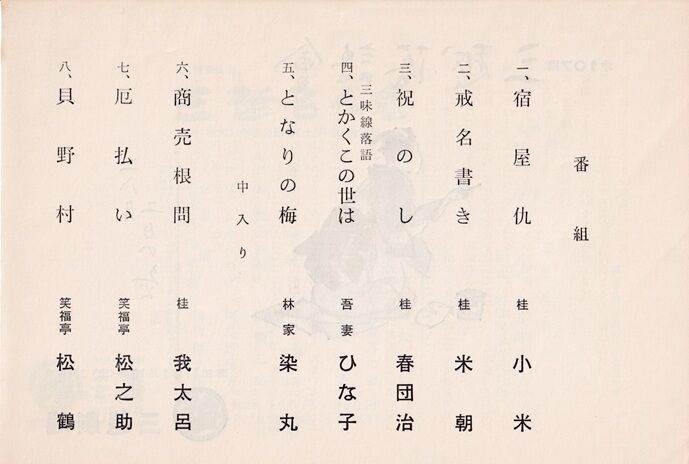 番組
一、宿屋仇 桂 小米
二、戒名書き 桂 米朝
三、祝のし 桂 春団治
三味線落語
四、とかくこの世は 吾妻 ひな子
五、となりの梅 林家 染丸
中入り
六、商売根問 桂 我太呂
七、厄払い 笑福亭 松之助
八、貝野村 笑福亭 松鶴